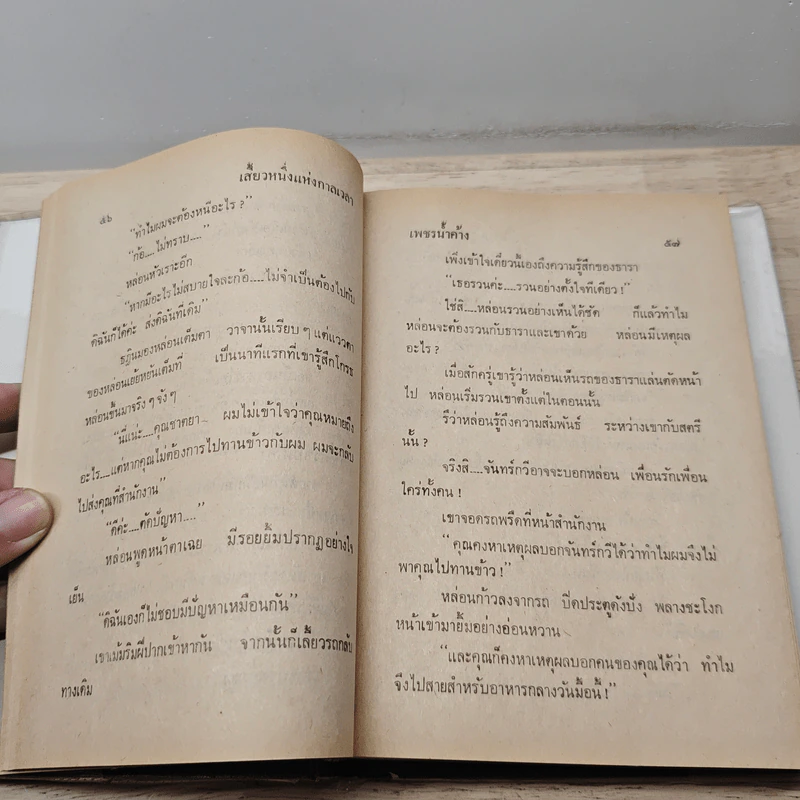 ๕๖
เสี้ยวหนึ่งแห่งกาลเวลา
“ทำไมผมจะต้องหนีอะไร ?”
“ก้อ....ไม่ทราบ....”
หล่อนหัวเราะอีก
“หากมีอะไรไม่สบายใจละก้อ....ไม่จำเป็นต้องไปกับ
ดิฉันก็ได้ค่ะ ส่งดิฉันที่เดิม”
ธฏินมองหล่อนเต็มตา วาจานั้นเรียบๆ แต่แววตา
ของหล่อนเย้ยหยันเต็มที่ เป็นนาทีแรกที่เขารู้สึกโกรธ
หล่อนขึ้นมาจริงๆ จังๆ
“นี่แน่ะ....คุณชาตยา ผมไม่เข้าใจว่าคุณหมายถึง
อะไร....แต่หากคุณไม่ต้องการไปทานข้าวกับผม ผมจะกลับ
ไปส่งคุณที่สำนักงาน”
“ดีค่ะ....ตัดปัญหา....”
หล่อนพูดหน้าตาเฉย มีรอยยิ้มปรากฏอย่างใจ
เย็น
“ดิฉันเองก็ไม่ชอบมีปัญหาเหมือนกัน”
เขาเม้มริมฝีปากเข้าหากัน จากนั้นก็เลี้ยวรถกลับ
ทางเดิม
เพชรน้ำค้าง
๕๗
เพิ่งเข้าใจเดี๋ยวนี้เองถึงความรู้สึกของธารา
“เธอรวนค่ะ....รวนอย่างตั้งใจทีเดียว !”
ใช่สิ....หล่อนรวนอย่างเห็นได้ชัด ก็แล้วทำไม
หล่อนจะต้องรวนกับธาราและเขาด้วย หล่อนมีเหตุผล
อะไร ?
เมื่อสักครู่เขารู้ว่าหล่อนเห็นรถของธาราแล่นตัดหน้า
ไป หล่อนเริ่มรวนเขาตั้งแต่ในตอนนั้น
รึว่าหล่อนรู้ถึงความสัมพันธ์ ระหว่างเขากับสตรี
นั้น ?
จริงสิ....จันทร์กวีอาจจะบอกหล่อน เพื่อนรักเพื่อน
ใคร่ทั้งคน !
เขาจอดรถพรืดที่หน้าสำนักงาน
“คุณคงหาเหตุผลบอกจันทร์กวีได้ว่าทำไมผมจึงไม่
พาคุณไปทานข้าว !”
หล่อนก้าวลงจากรถ ปิดประตูดังปัง พลางชะโงก
หน้าเข้ามายิ้มอย่างอ่อนหวาน
“และคุณก็คงหาเหตุผลบอกคนของคุณได้ว่า ทำไม
จึงไปสายสำหรับอาหารกลางวันมื้อนี้ !”